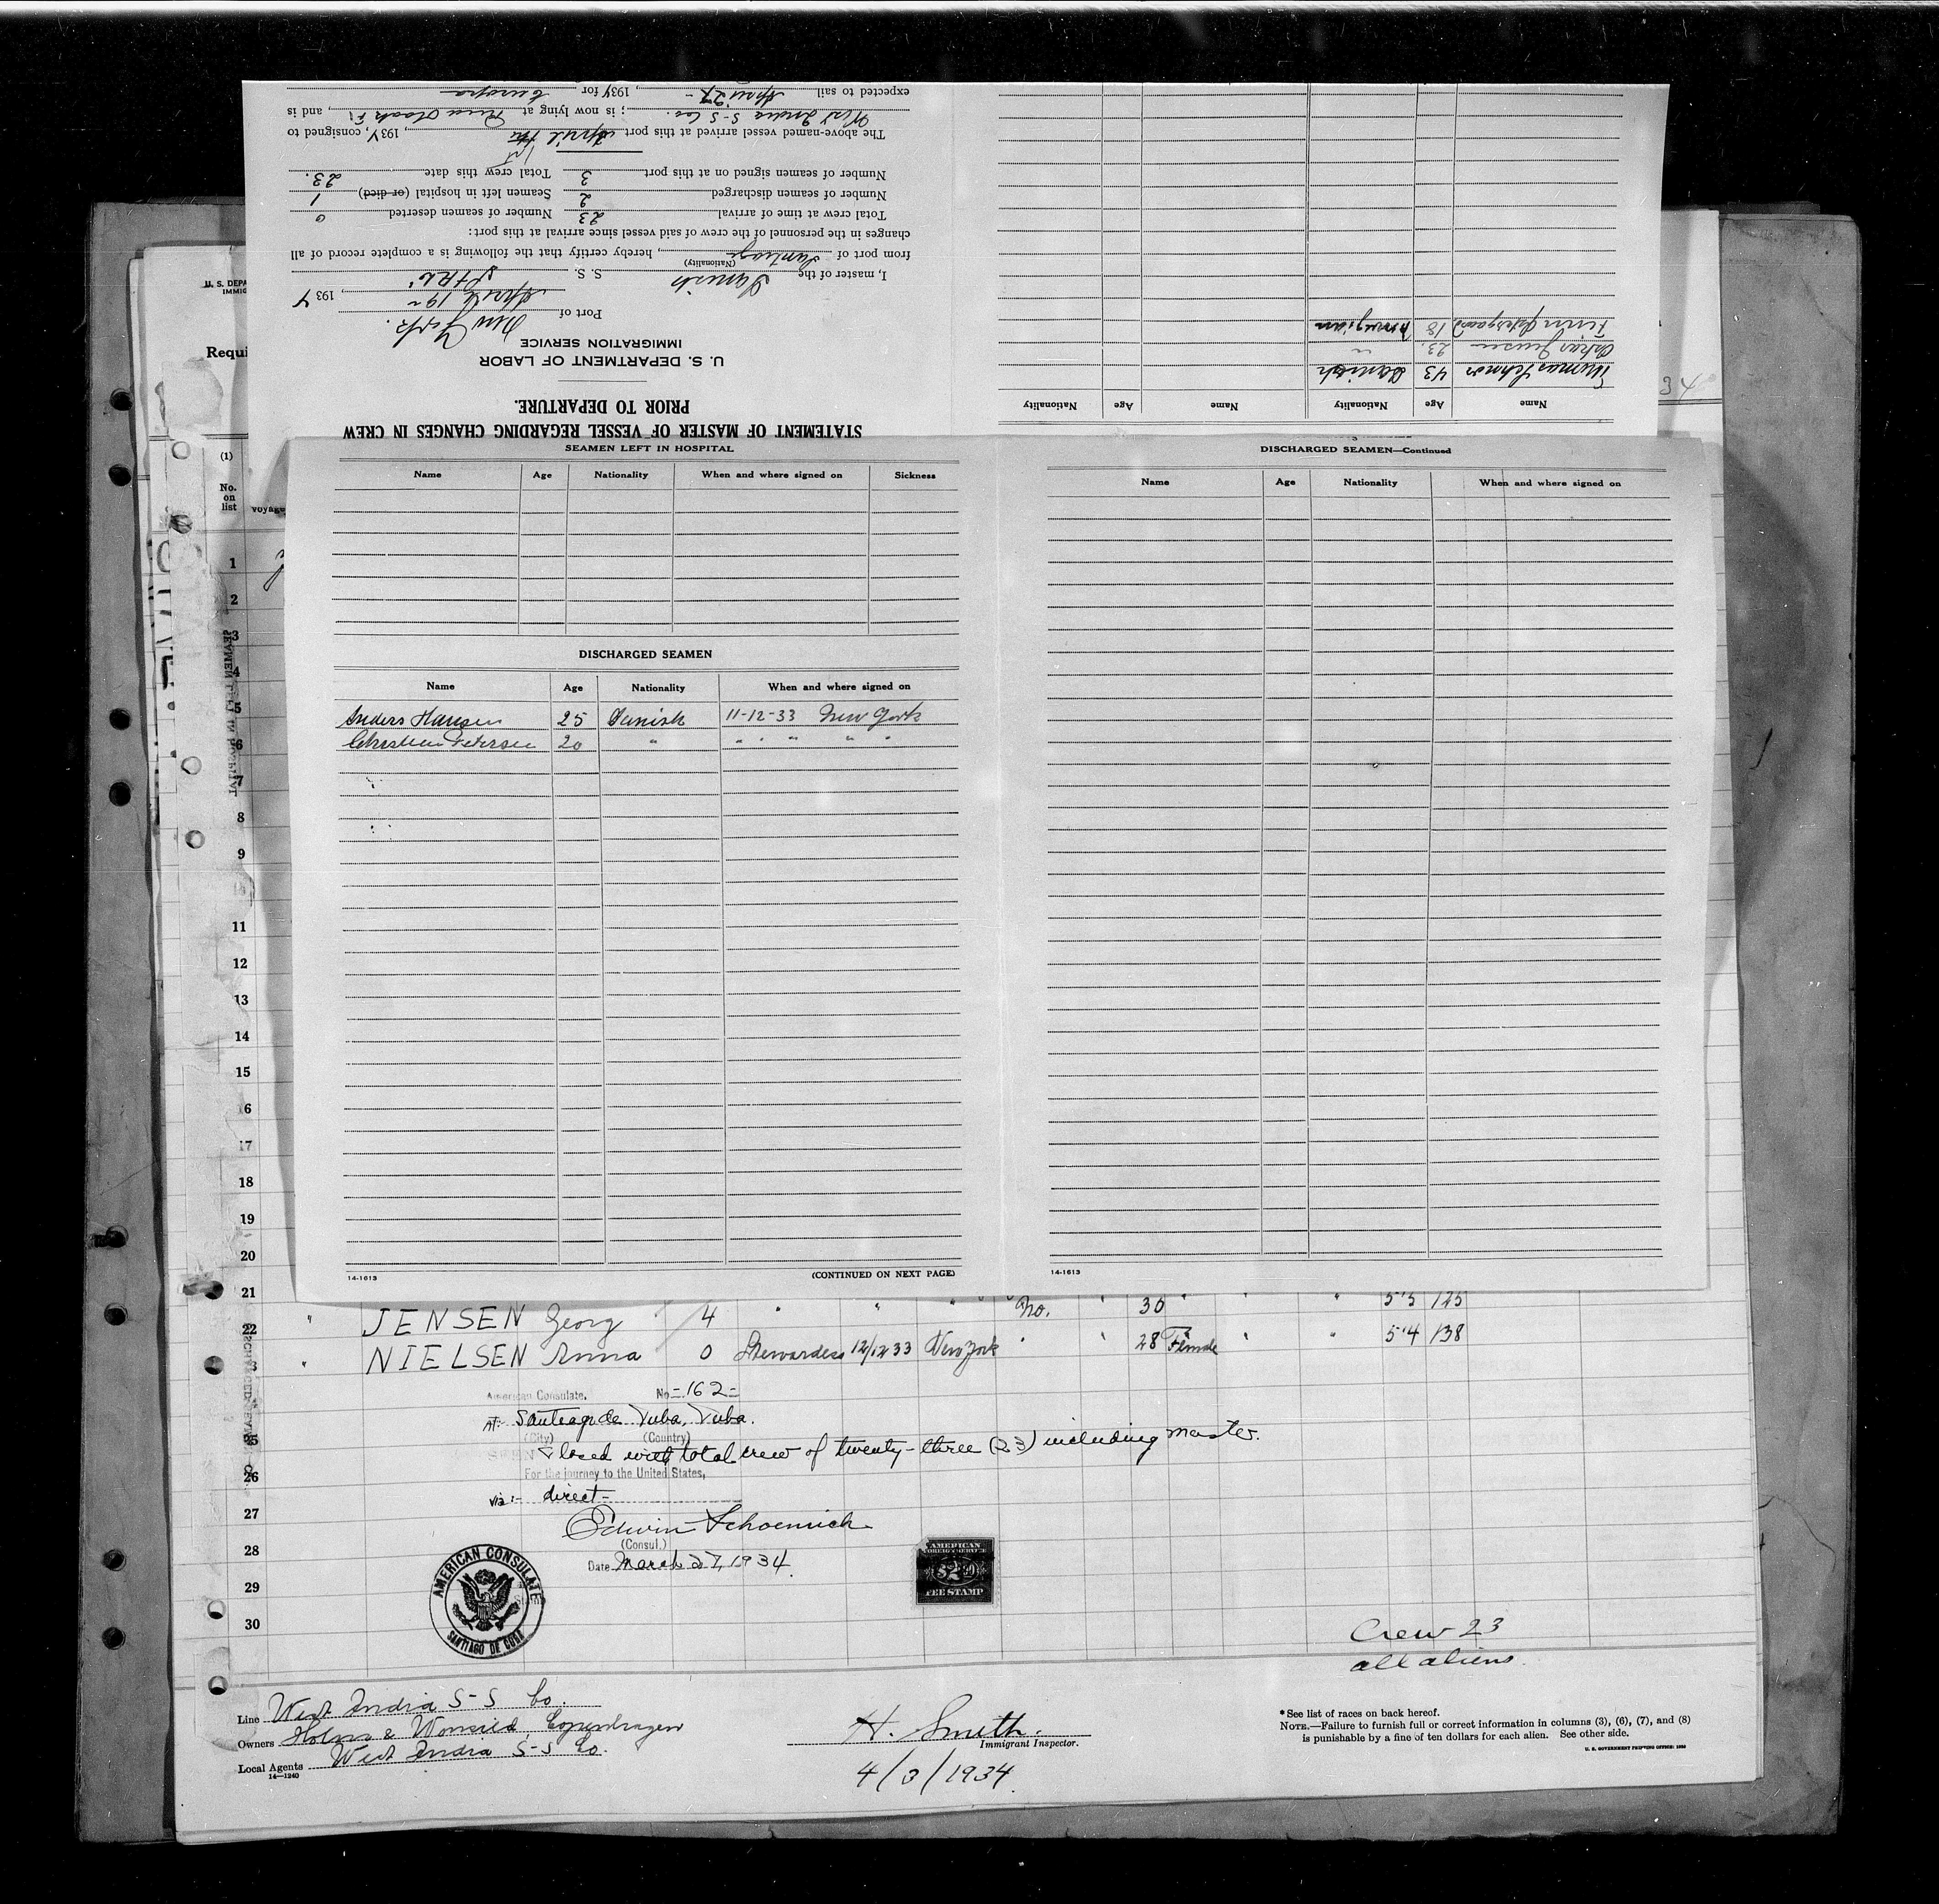 STATEMENT OF MASTER OF VESSEL REGARDING CHANGES IN CREW
PRIOR TO DEPARTURE.
U. S. DEPARTMENT OF LABOR
IMMIGRATION SERVICE
Port of New York.
April 19, 1934
I, master of the Danish S. S.
(Nationality)
from port of Santiago, hereby certify that the following is a complete record of all
changes in the personnel of the crew of said vessel since arrival at this port:
Total crew at time of arrival 23 Number of seamen deserted 0
Number of seamen discharged 2 Seamen left in hospital (or died) 1
Number of seamen signed on at this port 3 Total crew this date 23.
The above-named vessel arrived at this port April 1st, 1934, consigned to
West India S-S Co. ; is now lying at, and is
expected to sail April 27-, 1934 for Europa
Name Age Nationality Name Age Nationality
Thomas 43 Danish
Oskar Jensen 23. "
18 Norwegian
U. S. DEPA
IMMIG
Requi
34
(1)
No.
on
list
voyage
SEAMEN LEFT IN HOSPITAL
Name Age Nationality When and where signed on Sickness
DISCHARGED SEAMEN
Name Age Nationality When and where signed on
Anders Hansen 25 Danish 11-12-33 New York
Christian Petersen 20 " " " " " "
14-1613
(CONTINUED ON NEXT PAGE)
DISCHARGED SEAMEN—Continued
Name Age Nationality When and where signed on
14-1613
1
2
3
4
5
6
7
8
9
11
12
13
14
15
16
17
18
19
20
21
22 " JENSEN Georg 4 " " " No. " 30 " " " 5'5 125
3 " NIELSEN Anna 0 Stewardess 12/12 33 New York " " 28 Female " " 5'4 138
American Consulate. No -162-
At: Santiago de Cuba, Cuba.
(City) (Country)
25
Closed with total crew of twenty-three (23) including master.
26
For the journey to the United States,
via:- direct-
27
Edwin Schoenrich
(Consul.)
28
Date March 27, 1934.
29
30
AMERICAN CONSULATE
SANTIAGO DE CUBA
AMERICAN
FOREIGN SERVICE
FEE STAMP
Crew 23
all aliens.
Line West India S-S Co.
Owners Holm & Wonsild, Copenhagen
Local Agents West India S-S Co.
14-1240
H. Smith.
Immigrant Inspector.
4/3/1934.
* See list of races on back hereof.
NOTE.—Failure to furnish full or correct information in columns (3), (6), (7), and (8)
is punishable by a fine of ten dollars for each alien. See other side.